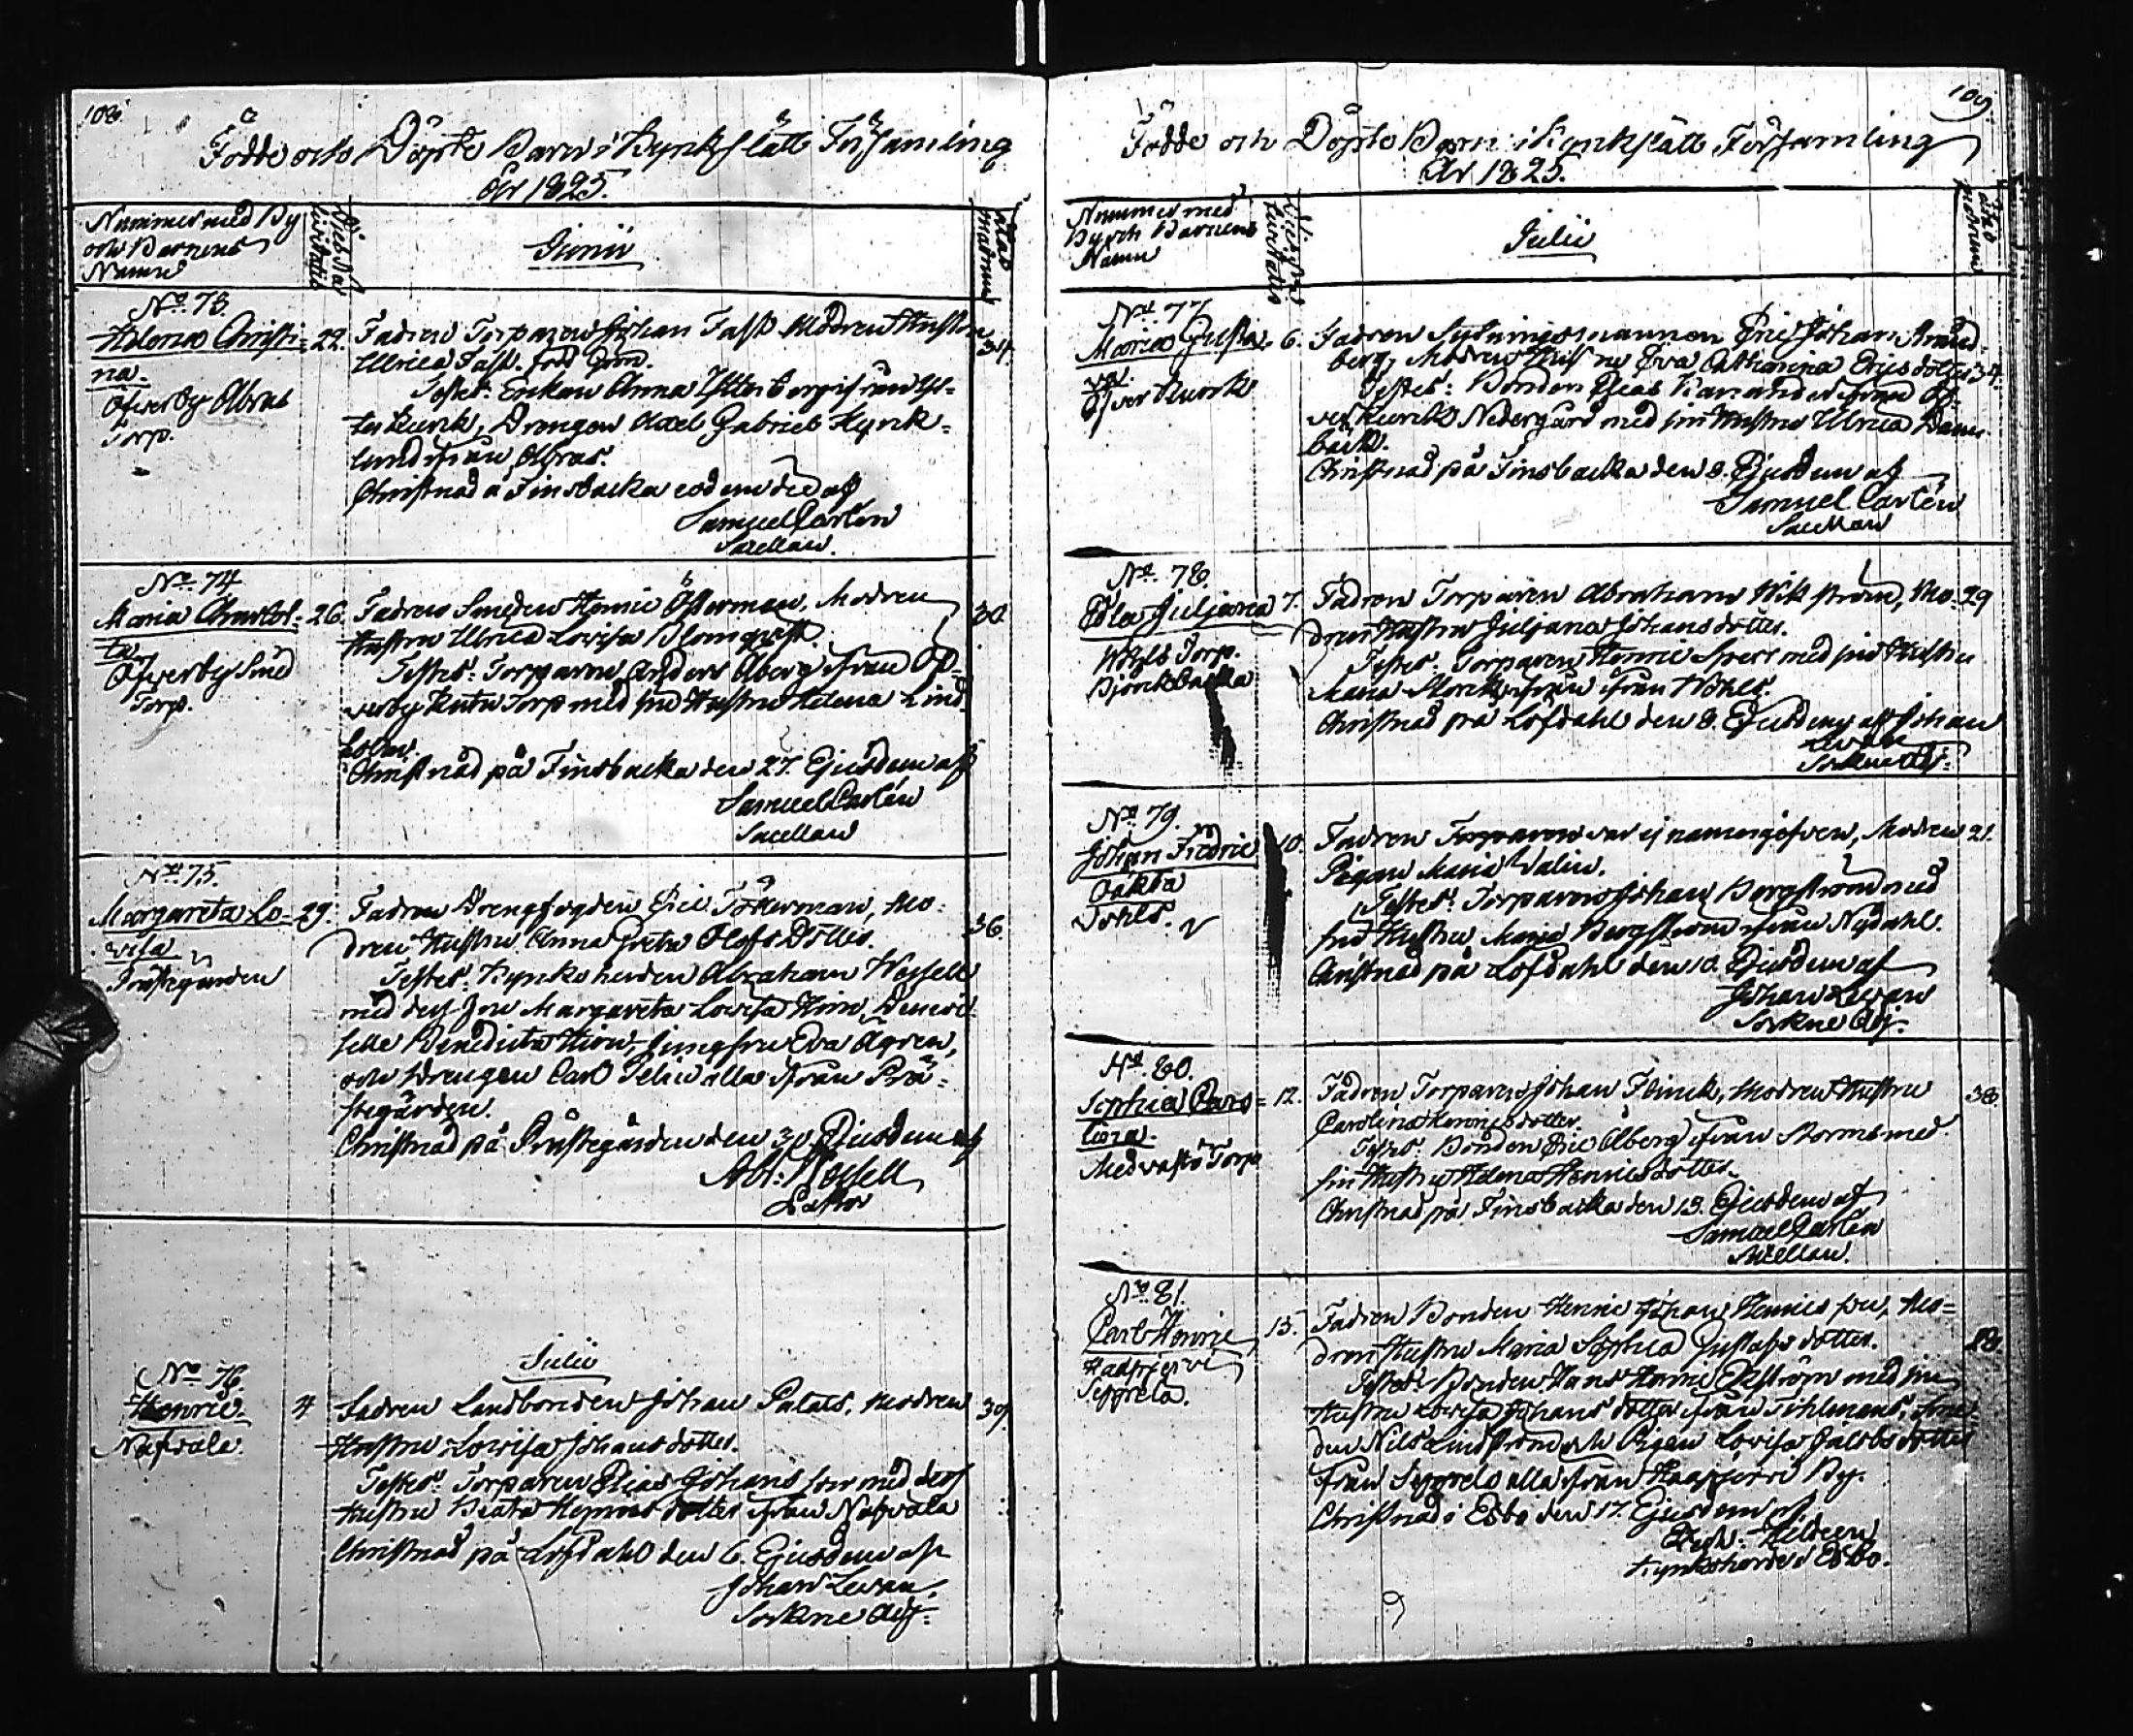 108.
Födde och Döpte Barn i Kyrkslätt Församling
År 1825.
Nummer med By
och Barnens
Namn
Dies Na
tivitatis
Junii
ætas
matrum
No. 73.
Helena Christi=
na.
Öfverby Abras
Torp.
22.
Fadren Torparen Johan Falk Modren Hustru
Ulrica Falk. född
34.
Testes: Enkan Anna
Drängen Axel Gabriel
från Abras.
Christnad å Finsbacka eodem die af
Samuel Carlén
Sacellan.
No. 74
Maria Charlot=
ta.
Öfverby Smed
Torp.
26.
Fadren Smeden Henric Österman, Modren
30.
Hustru Ulrica Lovisa Blomqvist.
Testes: Torparen Anders Åberg ifrån Öf=
verby Torp med sin Hustru Helena Lind
holm.
Christnad på Finsbacka den 27. Ejusdem af
Samuel Carlén
Sacellan
No. 75.
Margareta Lo=
visa
Prästegården
29.
Fadren Drengfogden Eric Mo=
36.
dren Hustru Anna Greta Olofs Dotter.
Testes: Kyrkoherden Abraham Wessell
med dess Fru Margareta Lovisa Hirn, Demoi=
selle Benedicta Hirn, Jungfru Eva Ågren,
och Drengen Carl alla ifrån Prä=
stegården.
Christnad på Prästegården den 30. Ejusdem af
Abr: Wessell
Pastor
Julii
No. 76.
Henric
Nafvala
4
Fadren Landbonden Johan Palats, Modren
39.
Hustru Lovisa Johans dotter.
Testes: Torparen Elias Johans son med dess
Hustru Beata Henrics dotter ifrån Nafvala
Christnad på Löfdahl den 6. Ejusdem af
Johan Levan
Sockne Adj:
109.
Födde och Döpte Barn i Kyrkslätt Församling
År 1825.
Nummer med
By och Barnens
Namn
Dies Na
tivitatis
Julii
ætas
matrum
No. 77
Maria Gusta=
va
Öfver Kurck
6.
Fadren Sytningsmannen Eric Johan Strand
berg, Modren Hustru Eva Catharina Erics dotter
34.
Testes: Bonden ifrån Öf=
ver Kurck Nedergård med sin Hustru Ulrica
Christnad på Finsbacka den 8. Ejusdem af
Samuel Carlén
Sacellan
No. 78.
Edla Juliana
Wohls Torp.
Björckbacka
7.
Fadren Torparen Abraham Wikström, Mo=
29
dren Hustru Juliana Johans dotter.
Testes: Torparen Henric med sin Hustru
Maria ifrån Wohls.
Christnad på Löfdahl den 8. Ejusdem af Johan
Levan
Sockne Adj:
No. 79.
Johan Fredric
oäkta
Wohls.
10.
Fadren Torparen var ej namngifven, Modren
21.
Pigan Maria Walin.
Testes: Torparen Johan Bergström med
sin Hustru Maria Bergström ifrån Nydahl.
Christnad på Löfdahl den 10. Ejusdem af
Johan Levan
Sockne Adj:
No. 80.
Sophia Caro=
lina.
Medvastö Torp
12.
Fadren Torparen Johan Flinck, Modren Hustru
38.
Carolina Henrics dotter.
Testes: Bonden Eric Åberg ifrån Storms med
sin Hustru Helena Henrics dotter
Christnad på Finsbacka den 13. Ejusdem af
Samuel Carlén
Sacellan.
No. 81.
Carl Henric
Haapjervi
Seppälä.
13.
Fadren Bonden Henric Johan Henrics son, Mo=
28.
dren Hustru Maria Sophia Gustafs dotter.
Testes: Bonden Hans Henric Ekström med sin
Hustru Lovisa Johans dotter ifrån Tihlmans,
den Nils Lindström och Pigan Lovisa Jacobs dotter
från alla ifrån Haapjervi By.
Christnad i Esbo den 17. Ejusdem af
Hildeen
Kyrkoherde i Esbo.